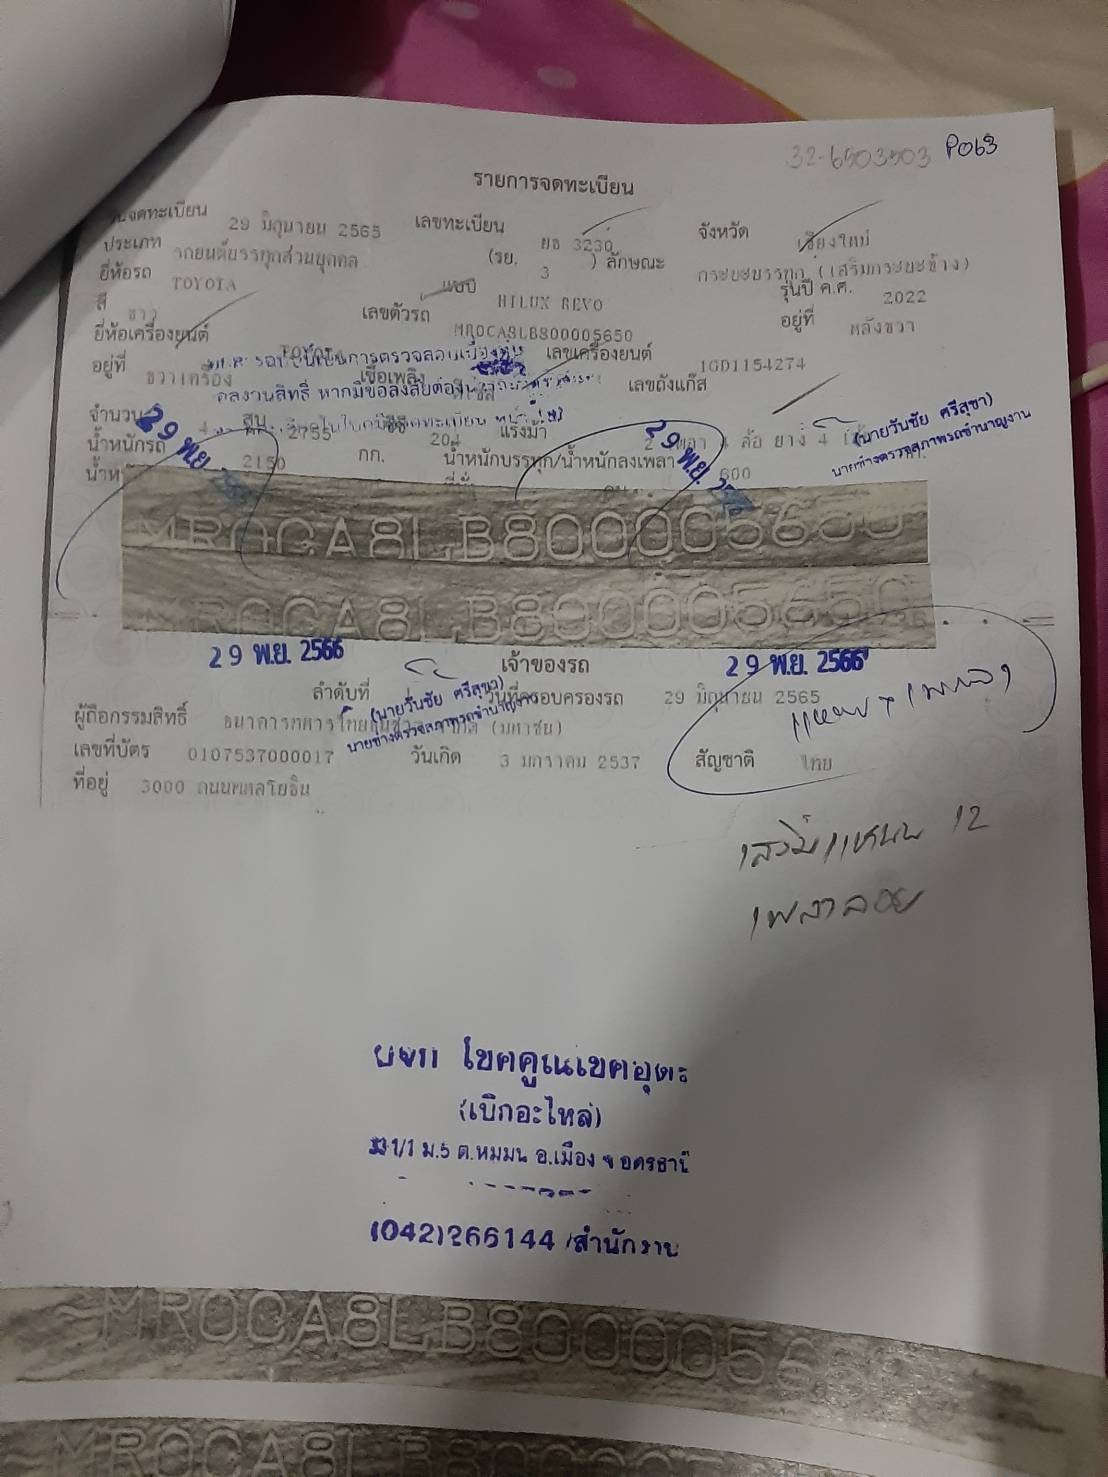 32-6503503 P063
รายการจดทะเบียน
จดทะเบียน 29 มิถุนายน 2565 เลขทะเบียน ยอ 3230 จังหวัด เชียงใหม่
ประเภท รถยนต์บรรทุกส่วนบุคคล (รย. 3 ) ลักษณะ กระบะบรรทุก (เสริมกระบะข้าง)
ยี่ห้อรถ TOYOTA แบบ HILUX REVO รุ่นปี ค.ศ. 2022
สี ขาว เลขตัวรถ MROCA8LB800005650 อยู่ที่ หลังขวา
ยี่ห้อเครื่องยนต์ TOYOTA เลขเครื่องยนต์ 1GD1154274
อยู่ที่ ขวาเครื่อง เชื้อเพลิง ดีเซล เลขถังแก๊ส
จำนวน 4 สูบ 2755 ซีซี 204 แรงม้า 2 เพลา 4 ล้อ ยาง 4
น้ำหนักรถ 2150 กก. น้ำหนักบรรทุก/น้ำหนักลงเพลา 600
(นายวันชัย ศรีสุขา)
นายช่างตรวจสภาพรถชำนาญงาน
29 พ.ย. 29 พ.ย.
MROCA8LB800005650
MROCA8LB800005650
29 พ.ย. 2566 เจ้าของรถ 29 พ.ย. 2566
ลำดับที่ วันที่ครอบครองรถ 29 มิถุนายน 2565
(นายวันชัย ศรีสุขา)
นายช่างตรวจสภาพรถชำนาญงาน
ผู้ถือกรรมสิทธิ์ ธนาคารทหารไทยธนชาต จำกัด (มหาชน)
เลขที่บัตร 0107537000017 วันเกิด 3 มกราคม 2537 สัญชาติ ไทย
ที่อยู่ 3000 ถนนพหลโยธิน
เสริมแหนบ 12
เพลาลอย
หจก โชคคูณเขคอุดร
(เบิกอะไหล่)
1/1 ม.5 ต.หมูม่น อ.เมือง จ อุดรธานี
(042)266144 /สำนักงาน
MROCA8LB80000565
MROCA8LB80000